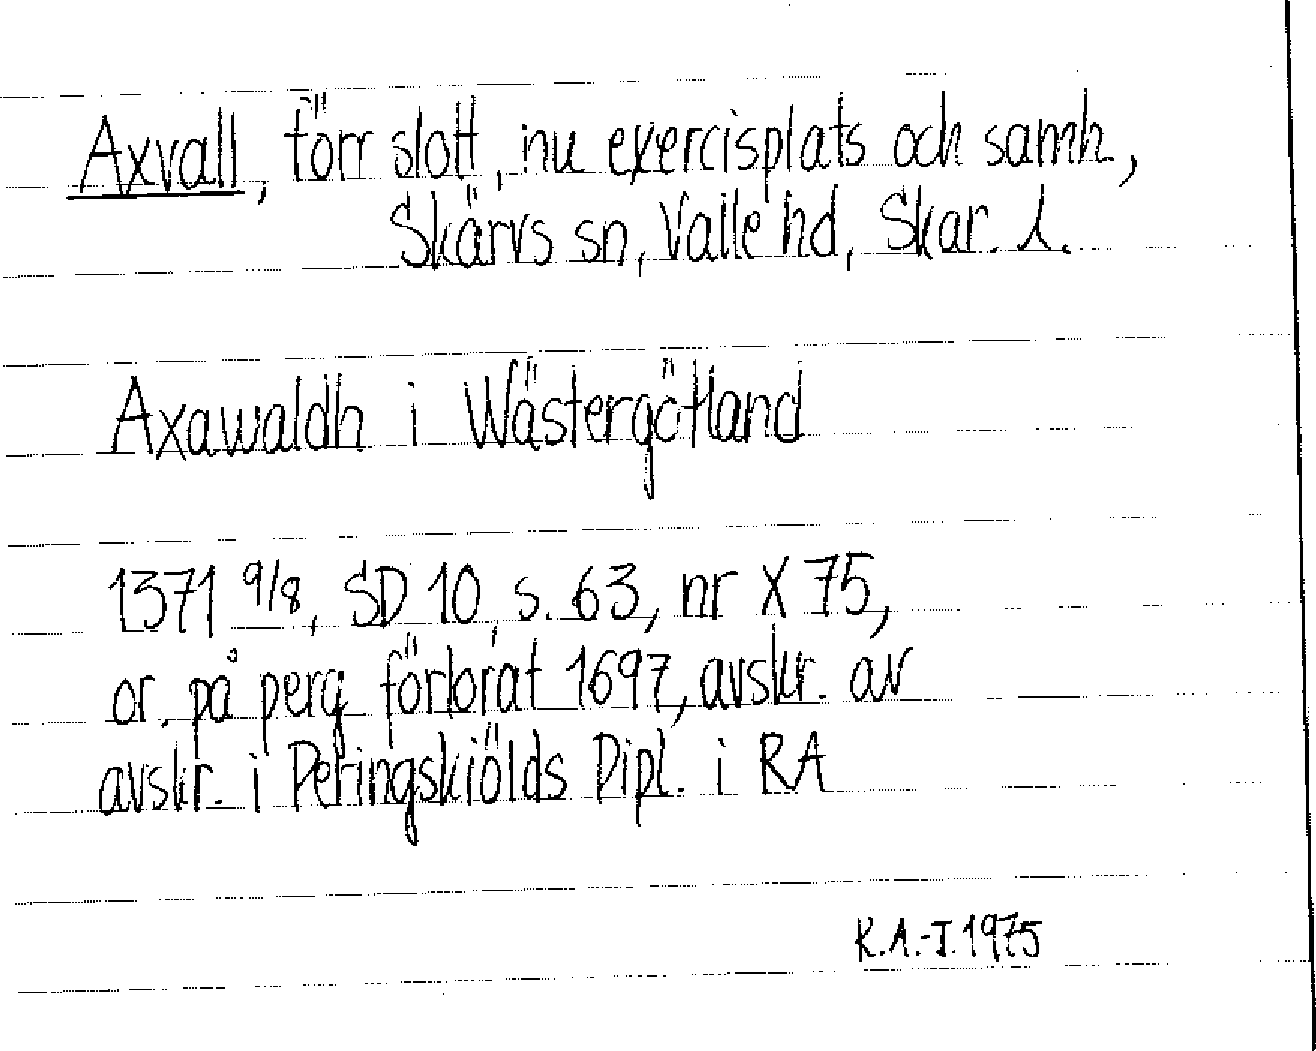 Axvall, förr slott, nu exercisplats och samh.,
Skärvs sn, Valle hd, Skar. l.
Axawaldh i Wästergötland
1371 9/8, SD 10, s. 63, nr X 75,
or. på perg. förlorat 1697, avskr. av
avskr. i Peringskiölds Dipl. i RA
K.A.-I. 1975